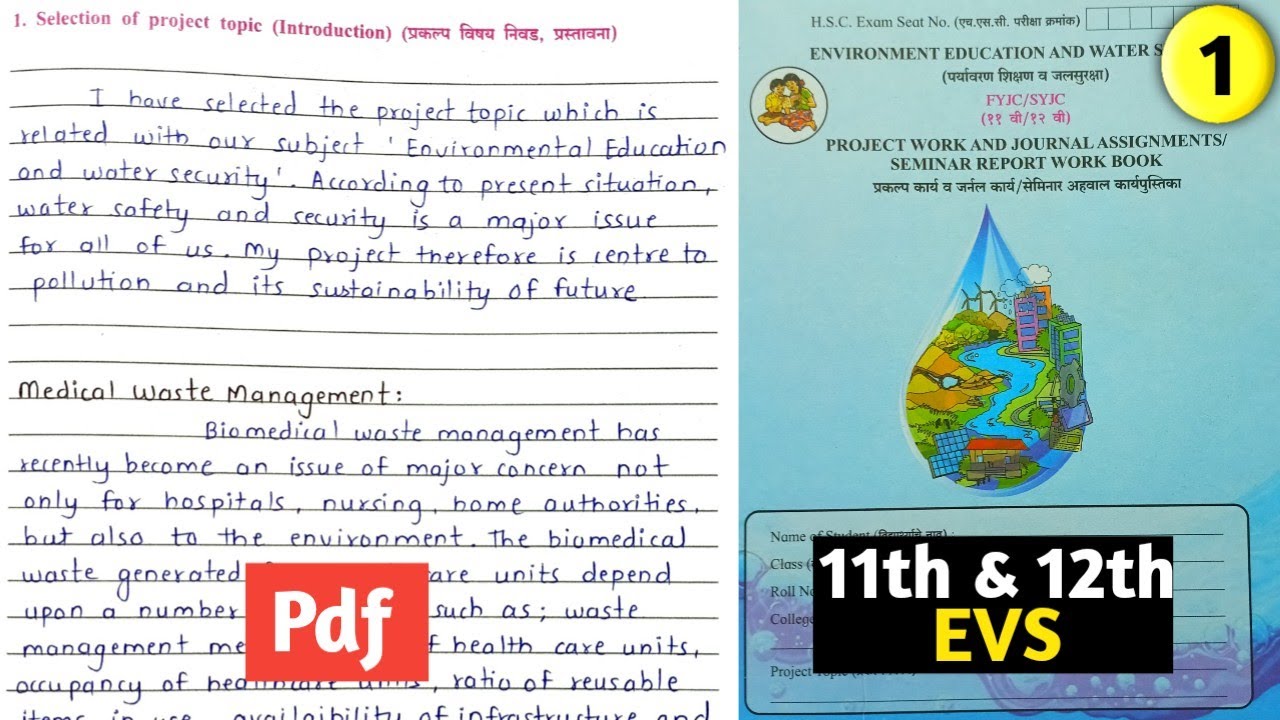 1. Selection of project topic (Introduction) (प्रकल्प विषय निवड, प्रस्तावना)
I have selected the project topic which is
related with our subject 'Environmental Education
and water security'. According to present situation,
water safety and security is a major issue
for all of us. My project therefore is centre to
pollution and its sustainability of future
Medical Waste Management:
Biomedical waste management has
recently become an issue of major concern not
only for hospitals, nursing, home authorities,
but also to the environment. The biomedical
waste generated are units depend
upon a number such as; waste
management me f health care units,
occupancy of healthcare units, ratio of reusable
items in use, availaibility of infrastructure and
Pdf
H.S.C. Exam Seat No. (एच.एस.सी. परीक्षा क्रमांक)
ENVIRONMENT EDUCATION AND WATER S
(पर्यावरण शिक्षण व जलसुरक्षा)
FYJC/SYJC
(११ वी/१२ वी)
PROJECT WORK AND JOURNAL ASSIGNMENTS/
SEMINAR REPORT WORK BOOK
प्रकल्प कार्य व जर्नल कार्य/सेमिनार अहवाल कार्यपुस्तिका
1
Name of Student
Class
Roll No
College
Project
11th & 12th
EVS